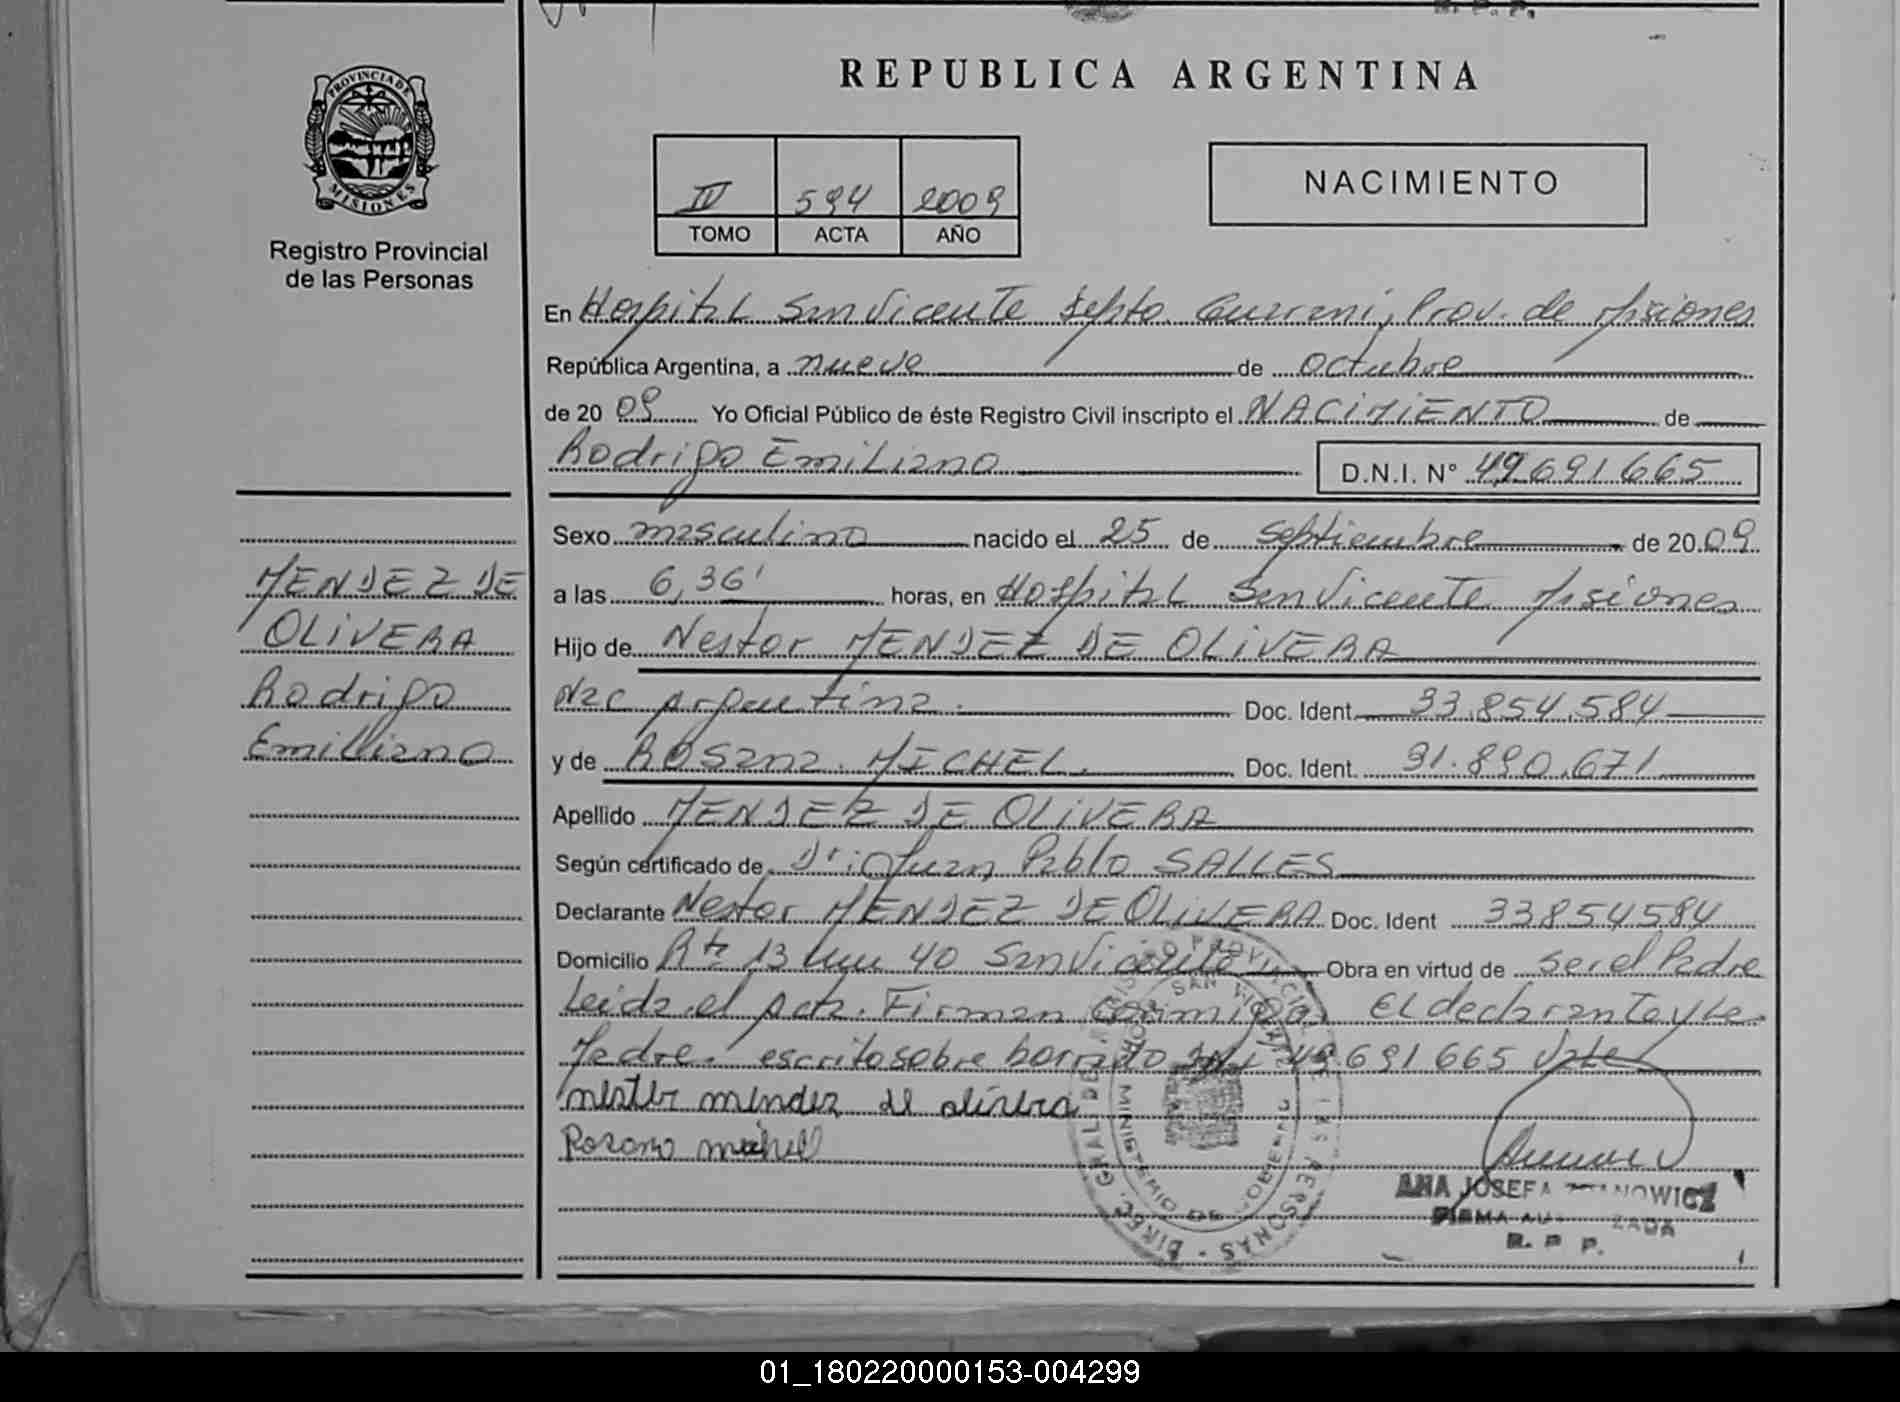 R. P. P.
REPUBLICA ARGENTINA
PROVINCIA DE
MISIONES
Registro Provincial
de las Personas
IV 594 2009
TOMO ACTA AÑO
NACIMIENTO
En Hospital San Vicente Depto. Guarani, Prov. de Misiones
República Argentina, a nueve de octubre
de 2009 Yo Oficial Público de éste Registro Civil inscripto el NACIMIENTO de
Rodrigo Emiliano D.N.I. N° 49691665
Sexo masculino nacido el 25 de septiembre de 2009
a las 6,36' horas, en Hospital San Vicente Misiones
Hijo de Nestor MENDEZ DE OLIVERA
Nac Argentina. Doc. Ident. 33.854.584
y de ROSANA MICHEL. Doc. Ident. 31.890.671
Apellido MENDEZ DE OLIVERA
Según certificado de Juan Pablo SALLES
Declarante Nestor MENDEZ DE OLIVERA Doc. Ident 33854584
Domicilio Rta 13 km 40 San Vicente Obra en virtud de ser el Padre
Leida el acta. Firman conmigo El declarante y la
Madre. escrito sobre borrado DNI 49691665 Vale
nestor mendez de olivera
Rosana michel
MENDEZ DE
OLIVERA
Rodrigo
Emiliano
DIREC. GRAL. DEL REGISTRO PROVINCIAL DE LAS PERSONAS
MINISTERIO DE GOBIERNO
SAN VICENTE
ANA JOSEFA
FIRMA AUTORIZADA
R. P. P.
01_180220000153-004299